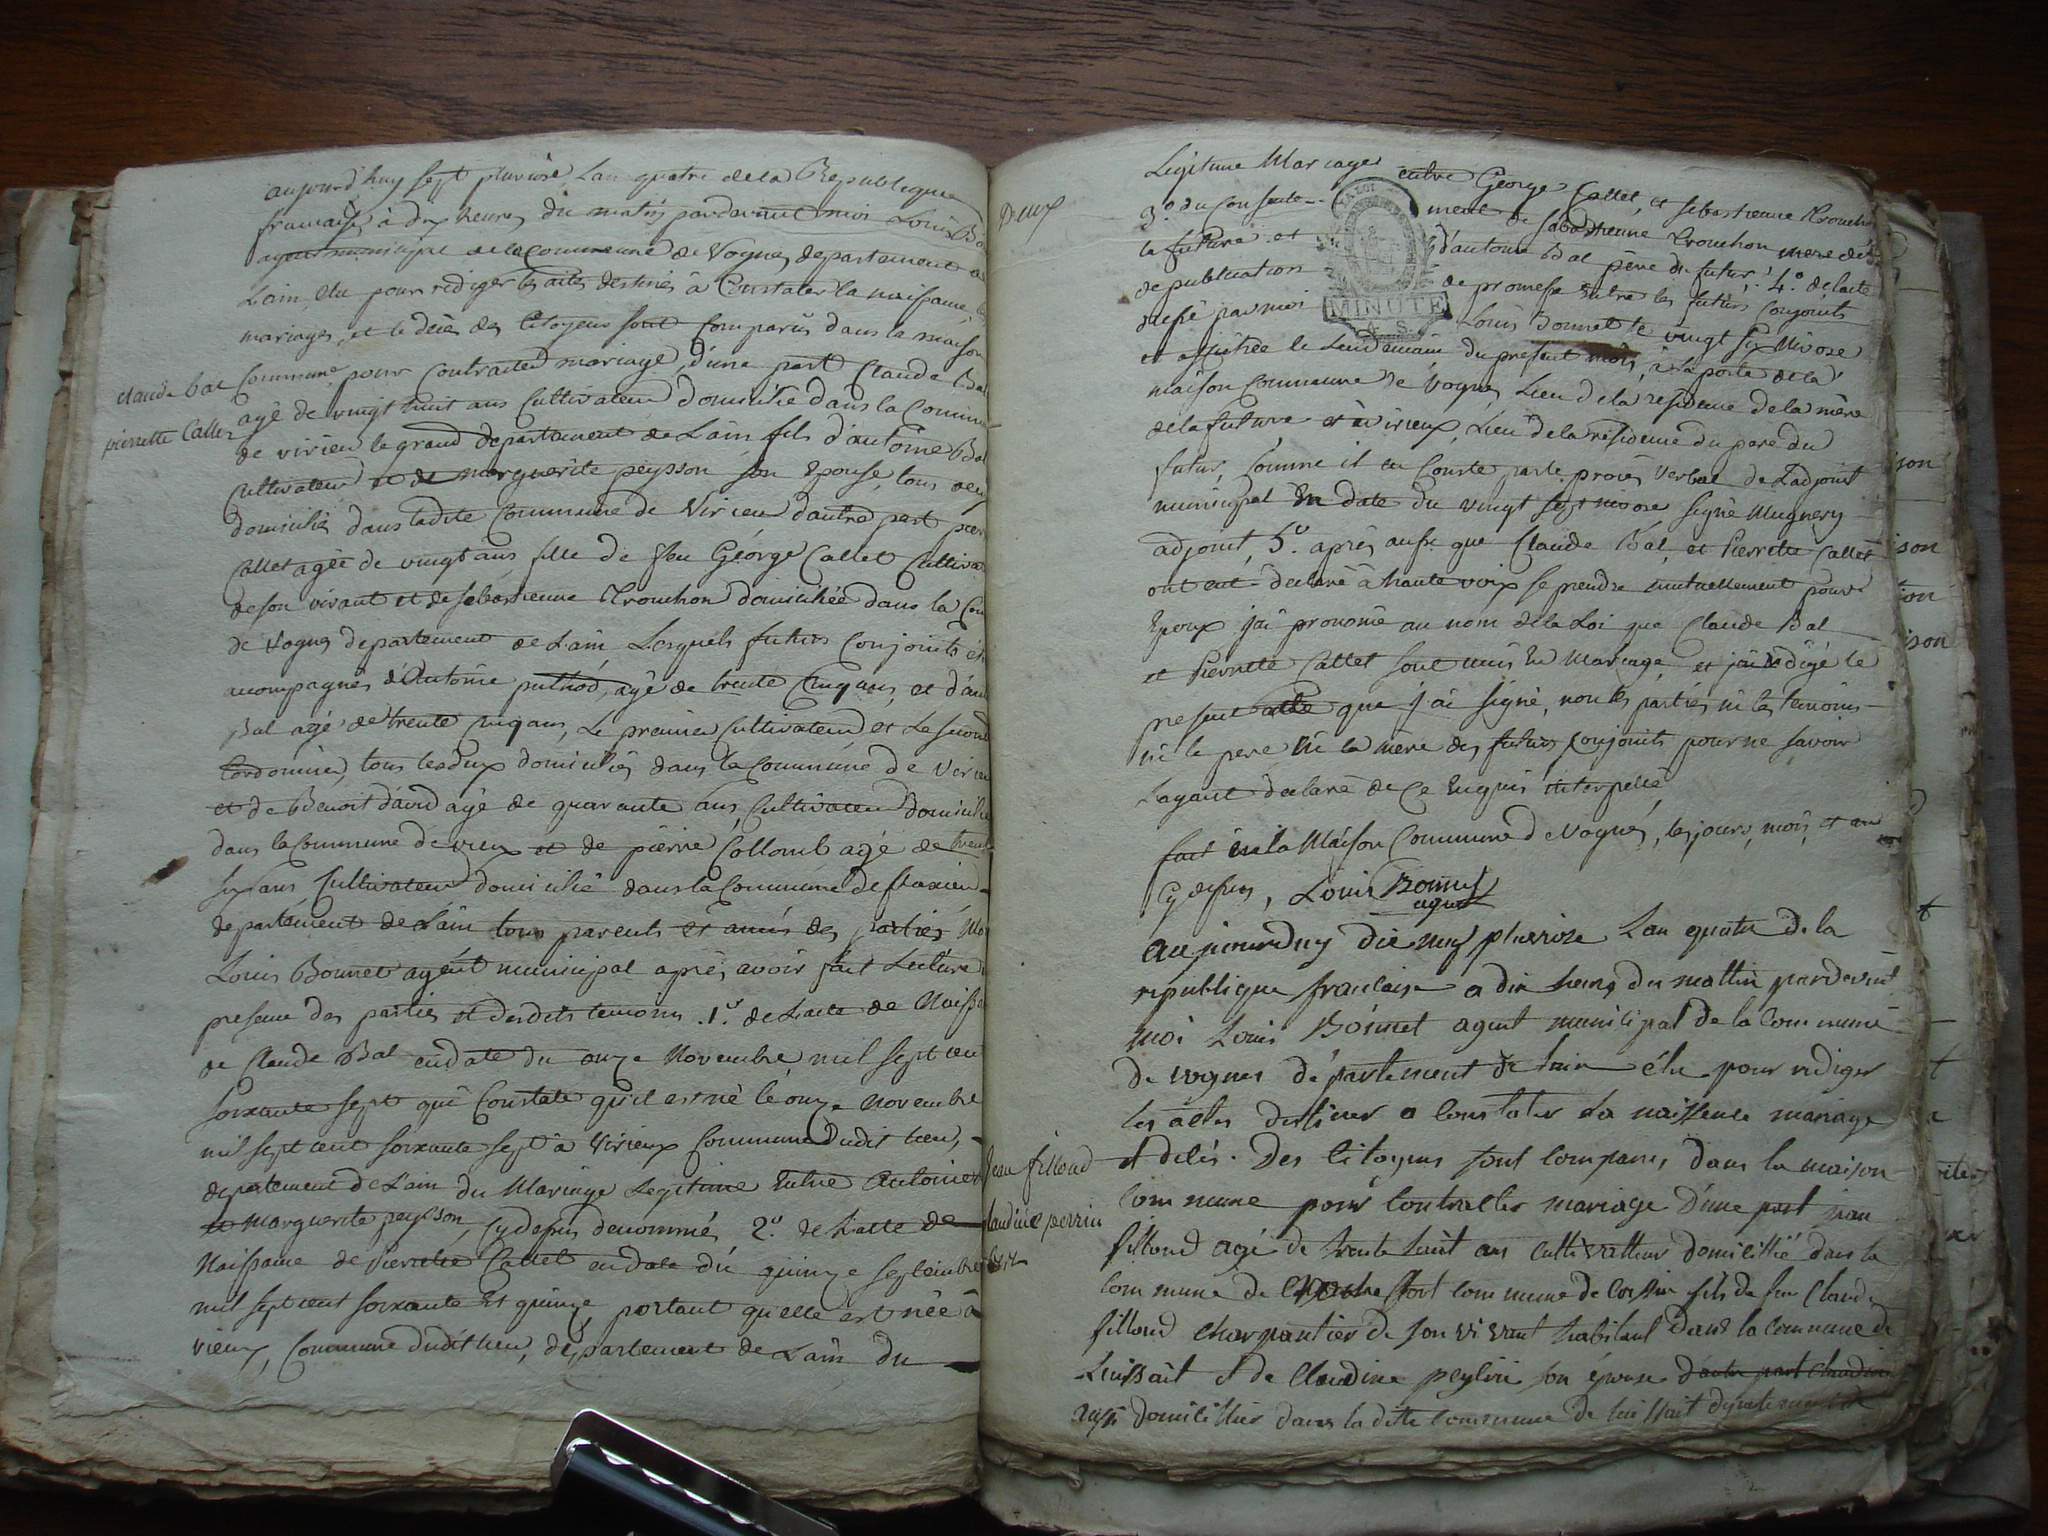 aujourd'huy sept pluviose Lan quatre de la Republique
francaise, à dix heures du matin pardevant moi Louis Bo
agent municipal de la Commune de Vognes departement de
Lain, élu pour rediger les actes destinés à Constater la naissance, les
mariages, et le décès des Citoyens sont comparus dans la maison
Commune, pour Contracter mariage, d'une part Claude Bal
claude bal
pierrette Callet
agé de vingt huit ans Cultivateur domicilié dans la Commu
de virieu le grand departement de Lain, fils d'antoine Bal
Cultivateur et de marguerite peysson son Epouse, tous deux
domiciliés dans ladite Commune de Virieu d'autre part pier
Callet agée de vingt ans fille de feu George Callet Cultiva
de son vivant et de sebastienne Trouchon domiciliée dans la Com
de Vognes departement de Lain Lesquels futurs Conjoints ét
acompagnés d'Antoine puthod, agé de trente Cinq ans, et d'an
Bal agé de trente Cinq ans, Le premier Cultivateur et Le second
Cordonnier, tous les deux domiciliés dans la Commune de Virieu
et de Benoit david agé de quarante ans, Cultivateur domicilié
dans la Commune de vieux et de pierre Collomb agé de trente
six ans Cultivateur domicilié dans la Commune de flaxieu
departement de Lain tous parents et amis des parties Moi
Louis Bonnet agent municipal après avoir fait Lecture en
presence des parties et desdits temoins .1.º de L'acte de Naissa
de Claude Bal en date du onze Novembre mil sept cent
soixante sept qui Constate qu'il est né le onze Novembre
mil sept cent soixante sept à Virieux Commune dudit lieu,
departement de Lain du Mariage Legitime Entre Antoine
et Marguerite peysson, cy depus denommés 2.º de L'acte de
Naissance de Pierrette Callet en date du quinze septembre
mil sept cent soixante Et quinze, portant qu'elle est née à
vieux, Commune dudit lieu, departement de Lain du
Deux
Legitime Mariage entre George Callet, et sebastienne Trouchon
3.º du Consentement de sebastienne Trouchon mere de
la future et d'antoine Bal père du futur: 4.º de l'acte
de publication de promesse Entre les futurs Conjoints
dressé par moi Louis Bonnet le vingt six Nivose
MINUTE
et affichée le Lendemain du present mois, à la porte de la
maison Commune de Vognes, Lieu de la residence de la mère
de la future et à virieux, Lieu de la résidence du pere du
futur, Comme il en Conste par le procès Verbal de L'adjoint
municipal En date du vingt sept nivose signé Mugnery
adjoint, 5.º après aussi que Claude Bal, et Pierrette Callet
ont eut declaré à haute voix se prendre mutuellement pour
Epoux j'ai prononcé au nom de la Loi que Claude Bal
et Pierrette Callet sont unis En Mariage, et j'ai redigé le
present acte que j'ai signé, non les parties ni les temoins
ni le pere Ni la mère des futurs Conjoints pour ne savoir
L'ayant declaré de Ce Enquis interpellé
fait En la Maison Commune de Vognes, les jours, mois, et an
Cy dessus, Louis Bonnet
agent
aujourduy dix neuf pluviose Lan quatre de la
republique francaise a dix heures du mattin pardevant
moi Louis Bonnet agent municipal de la Commune
de vognes département de lain élu pour rediger
les actes destiner a Constater la naissence mariage
Jean fillond
Claudine perrin
et délés. Des Citoyens sont Comparus, dans la maison
Commune pour Contracter mariage D'une part jean
fillond agé de trente huit ans cultivatteur domicillié dans la
Commune de commune de fils de feu Claude
fillond charpantier de son vivant habitant dans la commune de
Luissait et de Claudine peylin son épouse D'autre part Claudine
aussi domicillier dans la ditte Commune de luissait departement